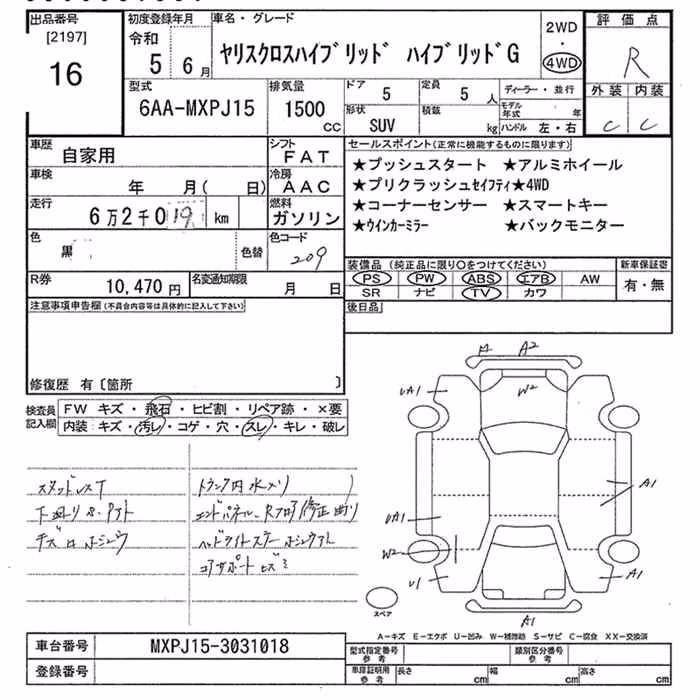 出品番号
[2197]
16
初度登録年月
令和
5 6月
車名・グレード
ヤリスクロスハイブリッド ハイブリッドG
2WD
・
4WD
評価点
R
外装 内装
C C
型式
6AA-MXPJ15
排気量
1500
CC
ドア
5
定員
5
人
形状
SUV
積載
kg
ディーラー・並行
モデル年式 年
ハンドル 左・右
車歴
自家用
シフト
FAT
車検
年 月( 日)
冷房
AAC
走行
6万2千019 km
燃料
ガソリン
色
黒
色替
色コード
209
R券
10,470円
名変通知期限
月 日
セールスポイント(正常に機能するものに限ります)
★プッシュスタート ★アルミホイール
★プリクラッシュセイフティ★4WD
★コーナーセンサー ★スマートキー
★ウインカーミラー ★バックモニター
装備品(純正品に限り○をつけてください)
PS PW ABS エアB AW
SR ナビ TV カワ
新車保証書
有・無
後日品
注意事項申告欄(不具合内容等は具体的に記入して下さい)
修復歴 有〔箇所 〕
検査員
記入欄
FW キズ・飛石・ヒビ割・リペア跡・×要
内装:キズ・汚レ・コゲ・穴・スレ・キレ・破レ
トランク内水メリ
下廻りS・アト
エンドパネル、Rフロア修正断り
コアサポートヒズミ
A A2
UA1
W2
A1
UA1
W2
U1
A1
A1
スペア
A-キズ E-エクボ U-凹み W-補修跡 S-サビ C-腐食 XX-交換済
車台番号
MXPJ15-3031018
登録番号
型式指定番号
参考
類別区分番号
参考
車庫証明用
参考
長さ cm 幅 cm 高さ cm